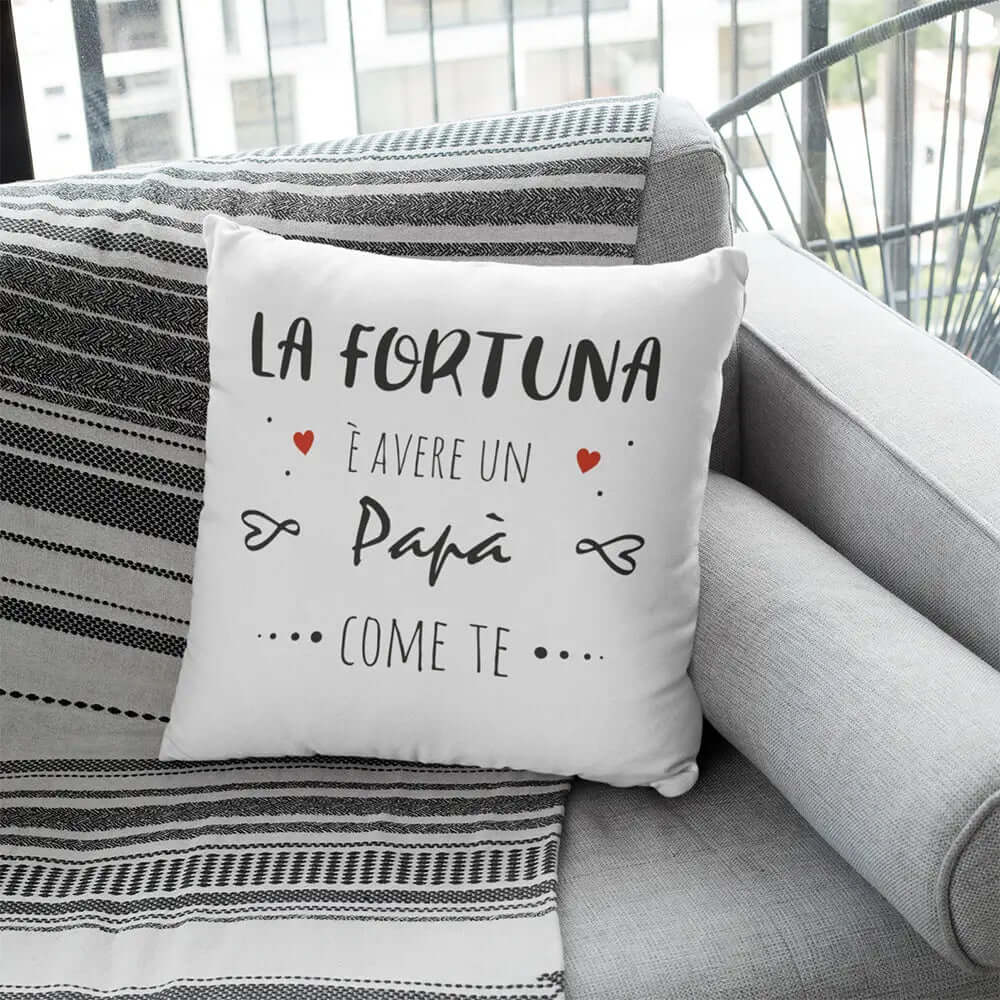 LA FORTUNA
È AVERE UN
Papà
COME TE